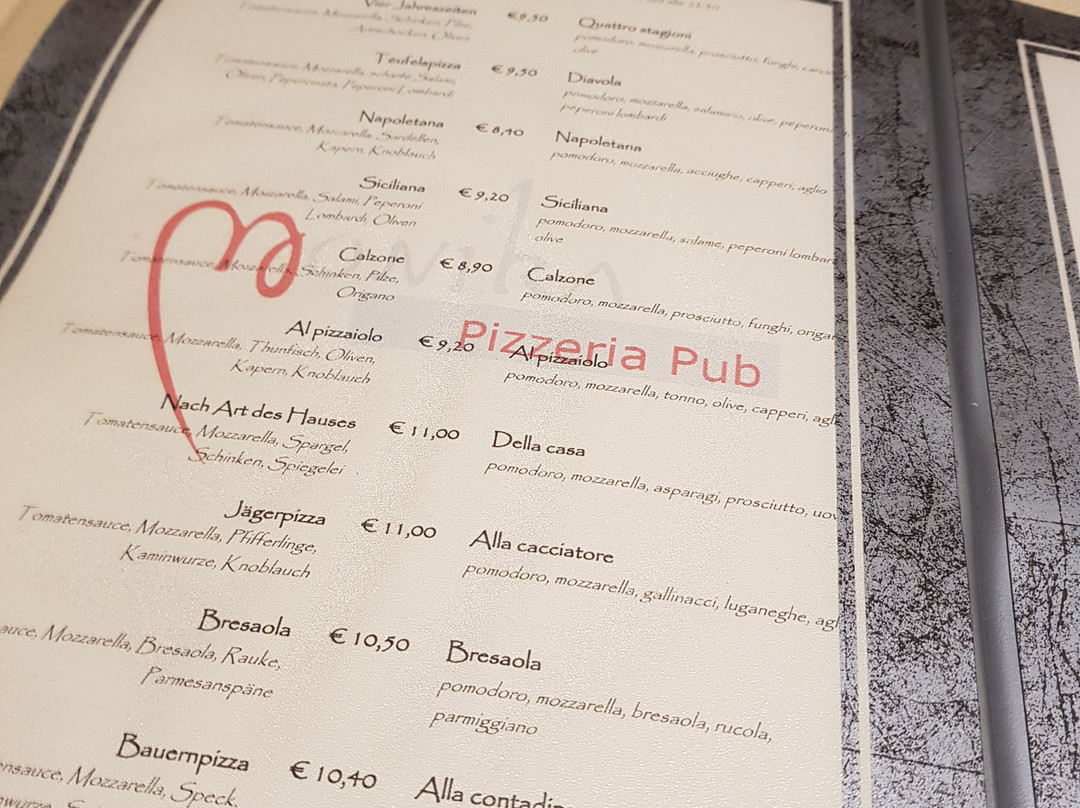 Vier Jahreszeiten €9,50 Quattro stagioni
Tomatensauce, Mozzarella, Schinken, Pilze, pomodoro, mozzarella, prosciutto, funghi,
Artischocken, Oliven olive
Teufelspizza €9,50 Diavola
Tomatensauce, Mozzarella, scharfe Salami, pomodoro, mozzarella, salamino, olive,
Oliven, Peperonata, Peperoni Lombardi peperoni lombardi
Napoletana €8,40 Napoletana
Tomatensauce, Mozzarella, Sardellen, pomodoro, mozzarella, acciughe, capperi, aglio
Kapern, Knoblauch
Siciliana €9,20 Siciliana
Tomatensauce, Mozzarella, Salami, Peperoni pomodoro, mozzarella, salame, peperoni lombar
Lombardi, Oliven olive
Calzone €8,90 Calzone
Tomatensauce, Mozzarella, Schinken, Pilze, pomodoro, mozzarella, prosciutto, funghi, origa
Origano
Pizzeria Pub
Al pizzaiolo €9,20 Al pizzaiolo
Tomatensauce, Mozzarella, Thunfisch, Oliven, pomodoro, mozzarella, tonno, olive, capperi, agl
Kapern, Knoblauch
Nach Art des Hauses €11,00 Della casa
Tomatensauce, Mozzarella, Spargel, pomodoro, mozzarella, asparagi, prosciutto, uov
Schinken, Spiegelei
Jägerpizza €11,00 Alla cacciatore
Tomatensauce, Mozzarella, Pfifferlinge, pomodoro, mozzarella, gallinacci, luganeghe, agl
Kaminwurze, Knoblauch
Bresaola €10,50 Bresaola
auce, Mozzarella, Bresaola, Rauke, pomodoro, mozzarella, bresaola, rucola,
Parmesanspäne parmiggiano
Bauernpizza €10,40 Alla contadin
ensauce, Mozzarella, Speck,